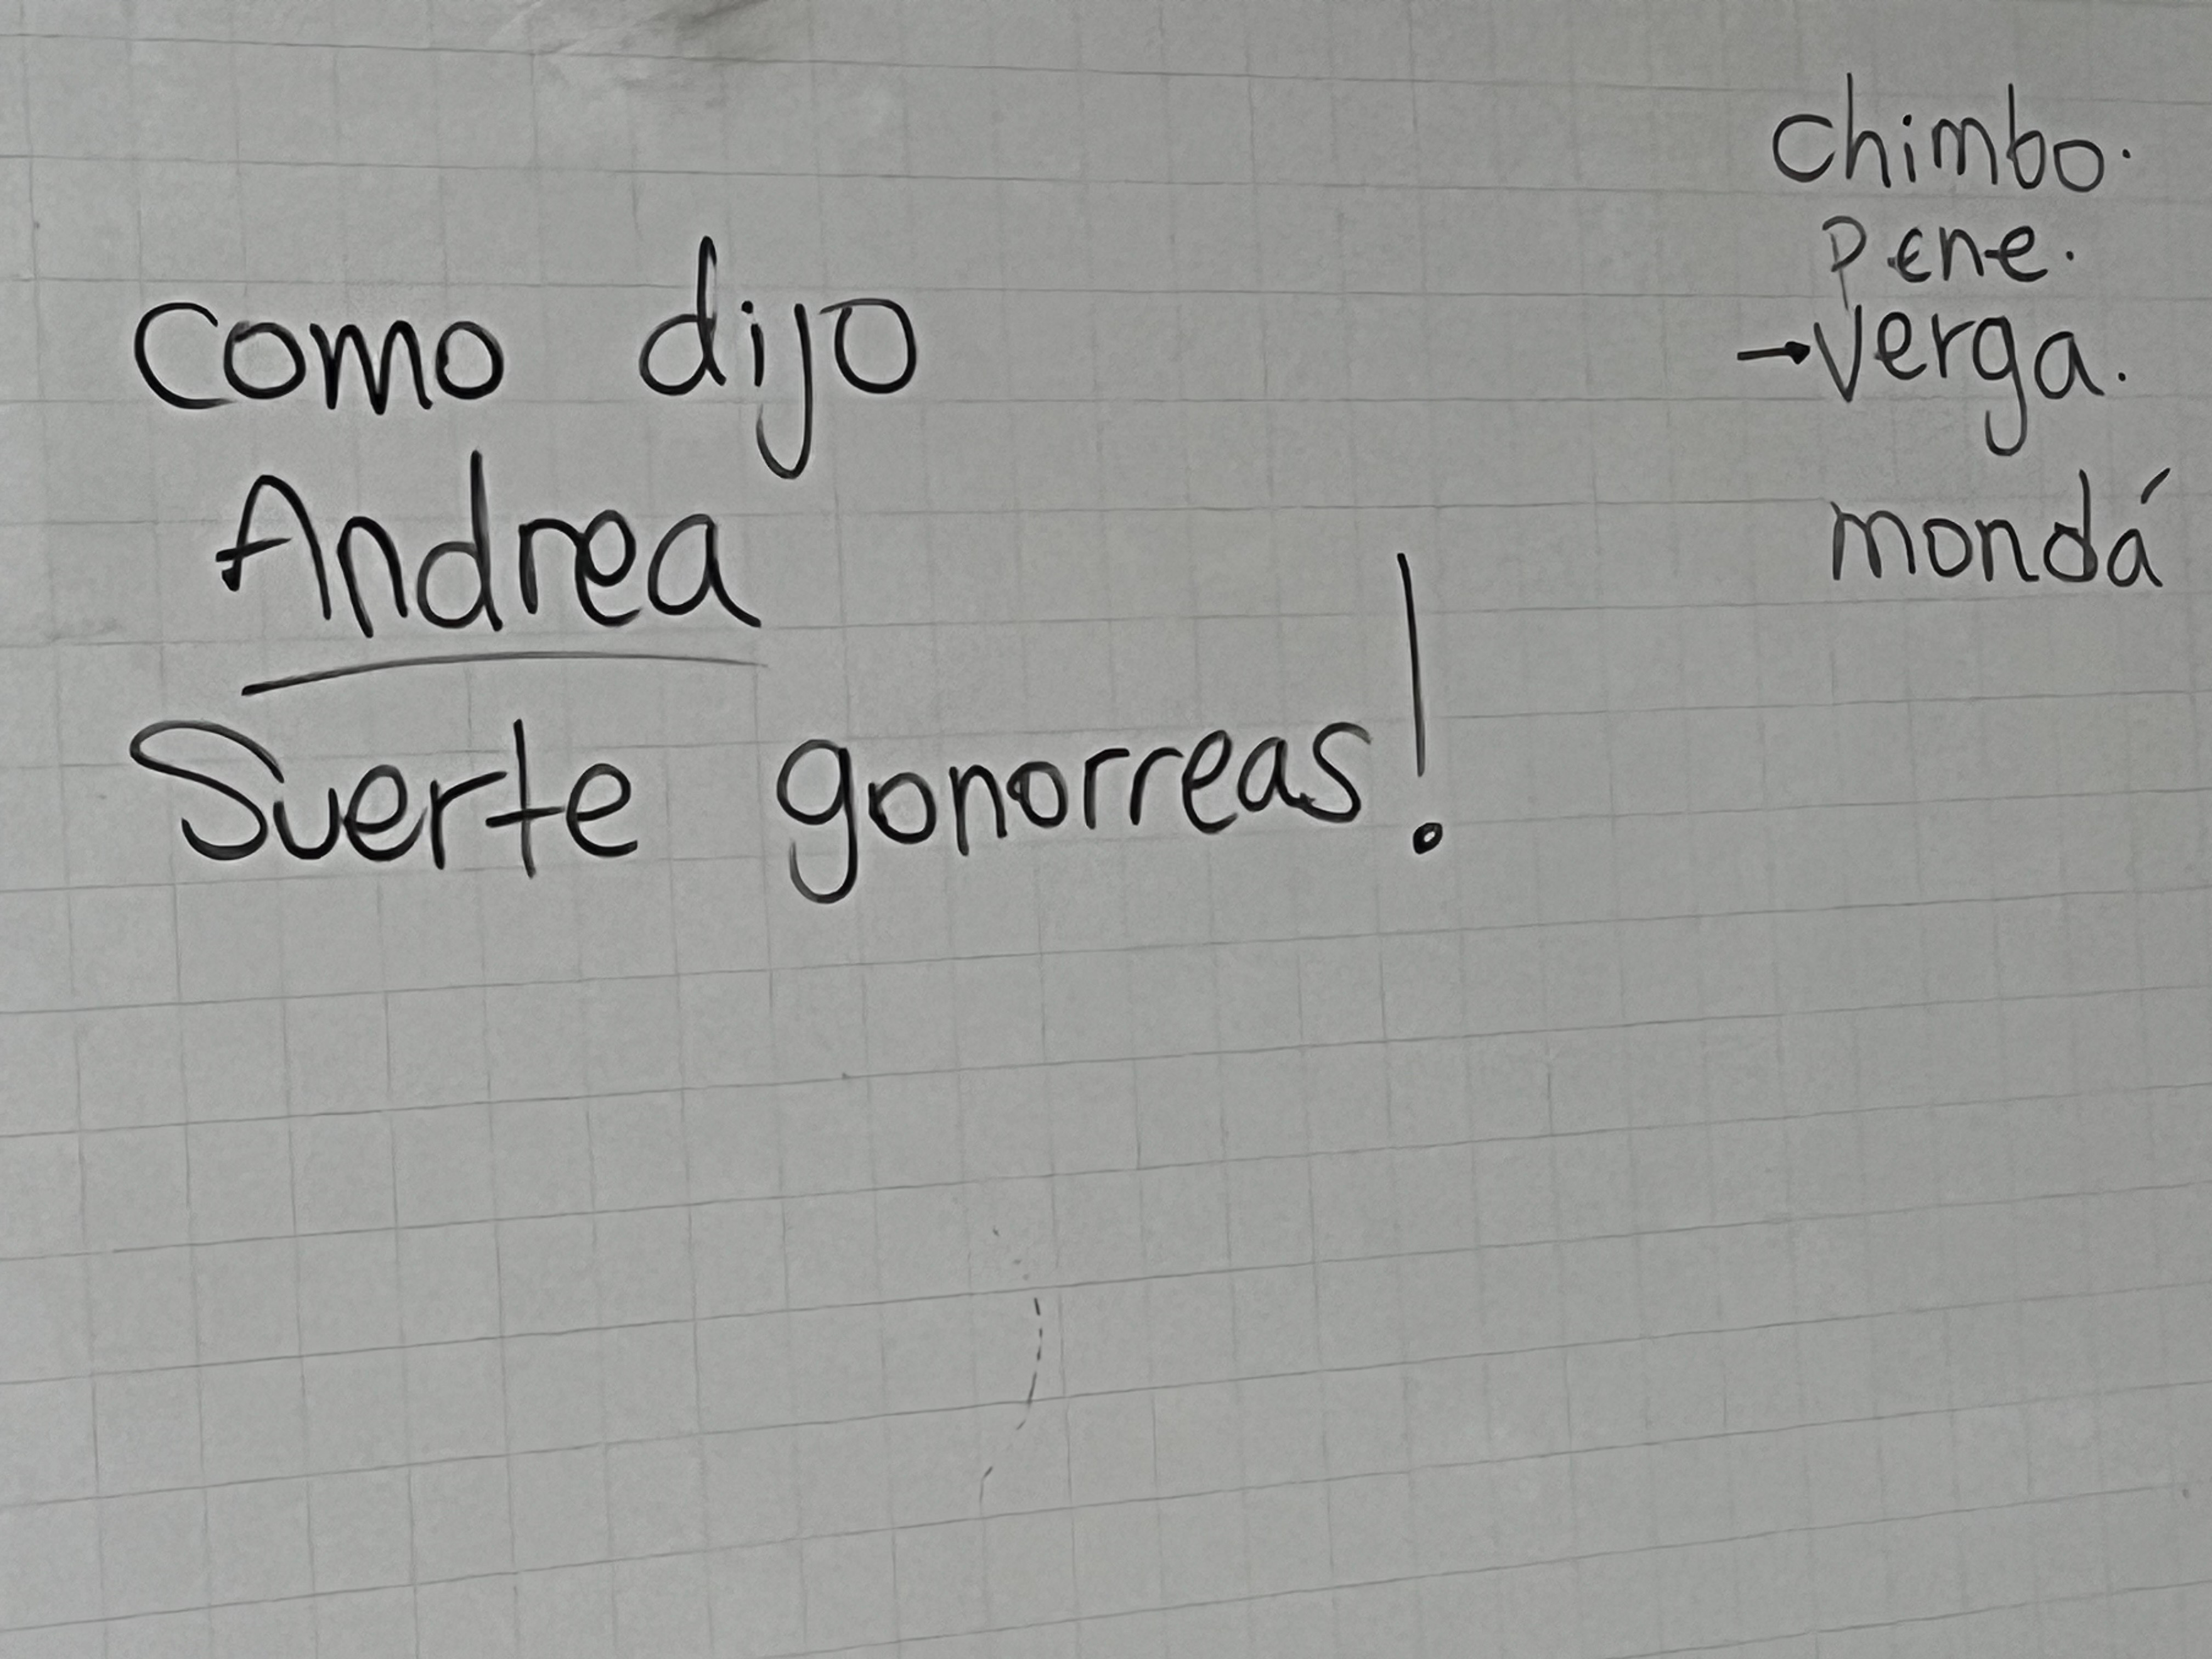 como dijo
Andrea
Suerte gonorreas!
chimbo.
pene.
→verga.
mondá